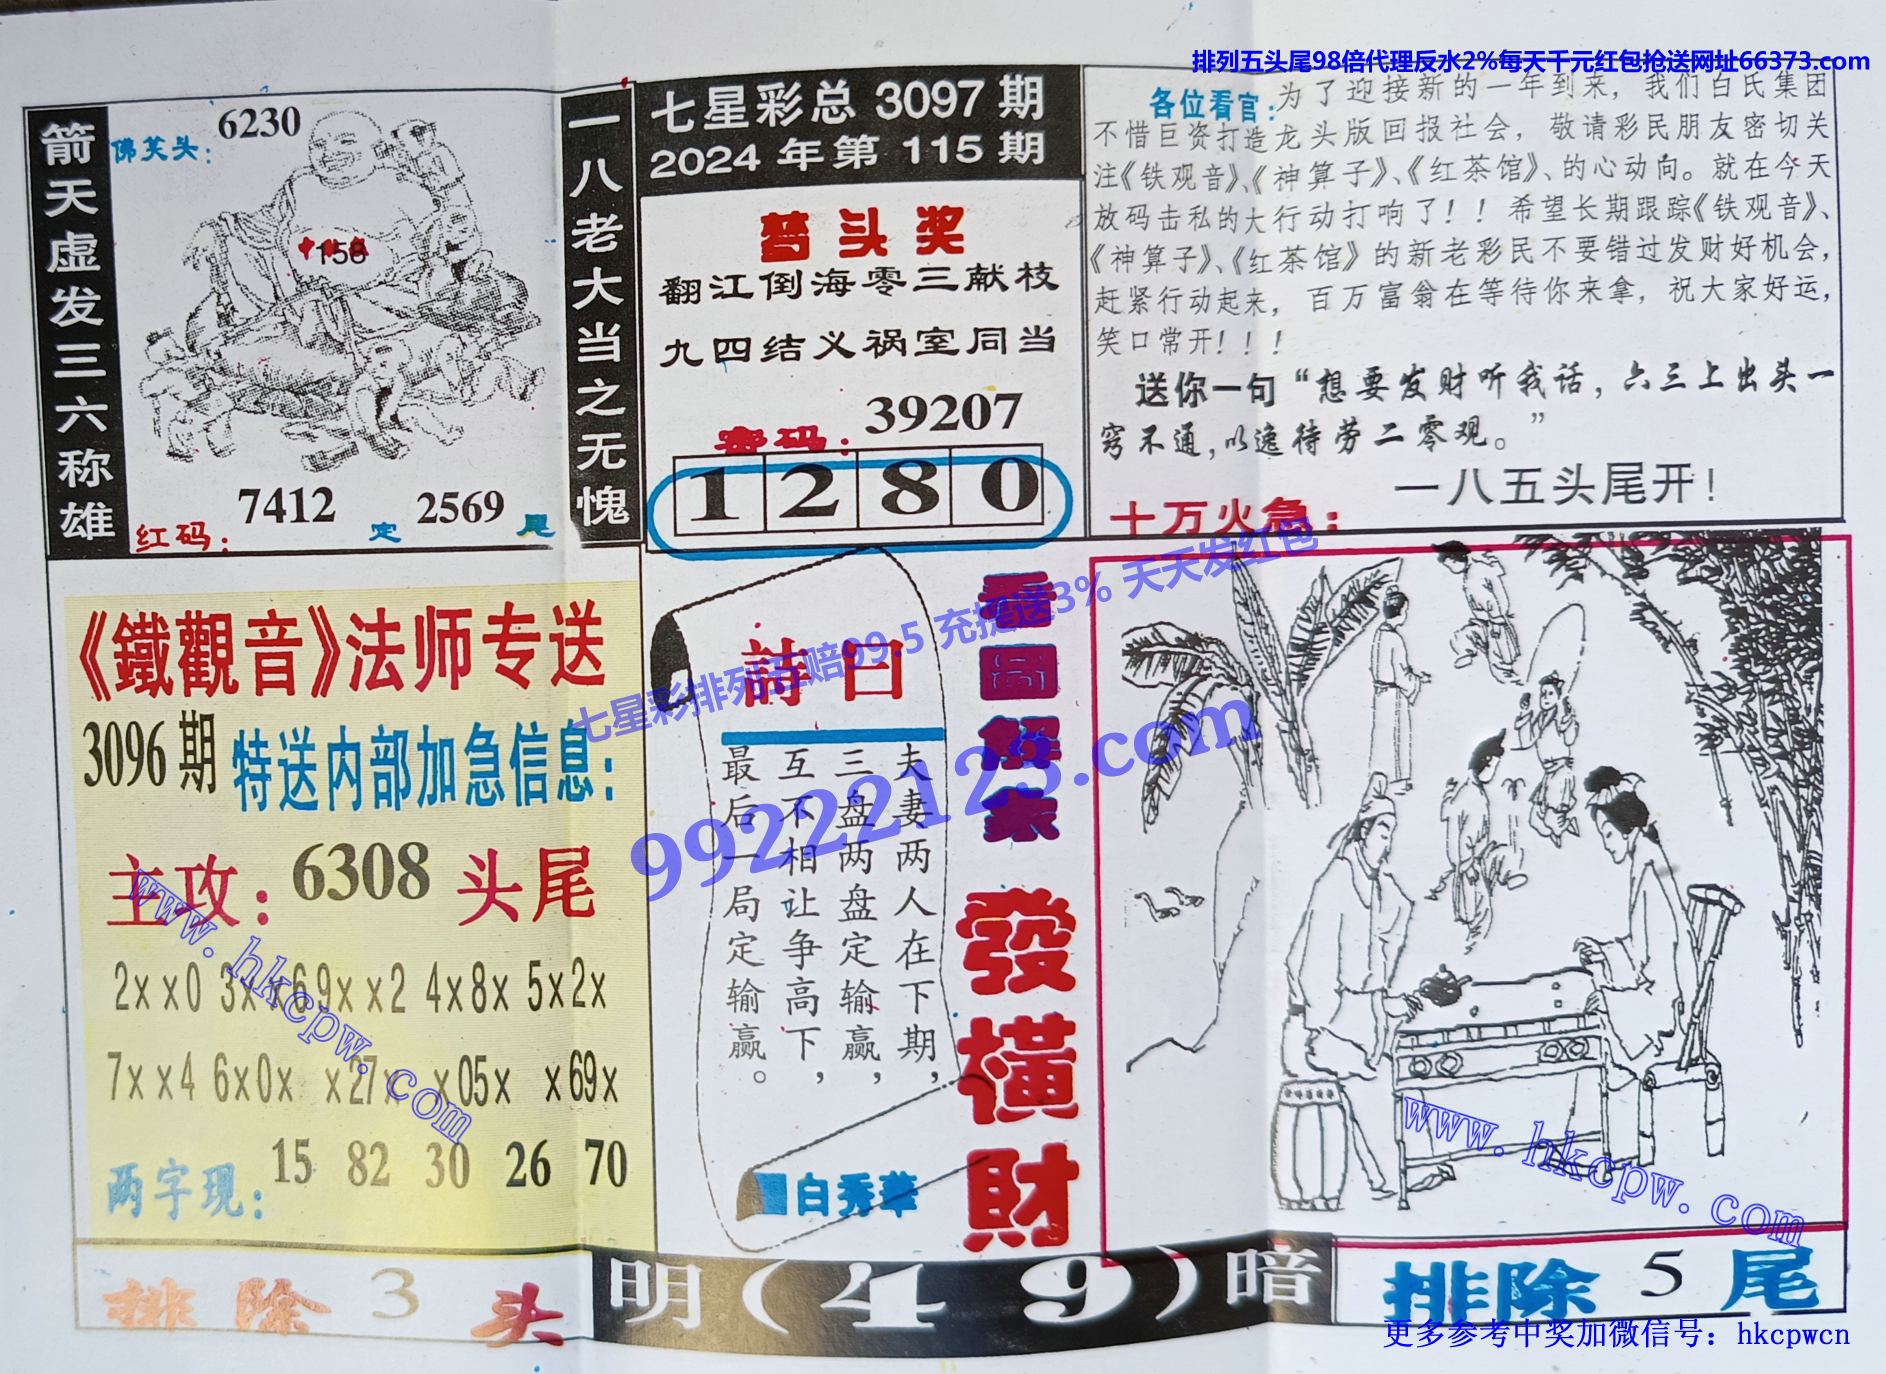 排列五头尾98倍代理反水2%每天千元红包抢送网址66373.com
箭天虚发三六称雄
佛笑头：
6230
158
红码：
7412
定
2569
尾
一八老大当之无愧
七星彩总 3097 期
2024 年第 115 期
头奖
翻江倒海零三献枝
九四结义祸室同当
39207
密码：
1 2 8 0
各位看官：为了迎接新的一年到来，我们白氏集团
不惜巨资打造龙头版回报社会，敬请彩民朋友密切关
注《铁观音》、《神算子》、《红茶馆》、的心动向。就在今天
放码击私的大行动打响了！！希望长期跟踪《铁观音》、
《神算子》、《红茶馆》的新老彩民不要错过发财好机会，
赶紧行动起来，百万富翁在等待你来拿，祝大家好运，
笑口常开！！！
送你一句“想要发财听我话，六三上出头一
窍不通，以逸待劳二零观。”
一八五头尾开！
十万火急：
《鐵觀音》法师专送
3096 期
特送内部加急信息：
主攻：6308 头尾
2xx0 3xx6 9xx2 4x8x 5x2x
7xx4 6x0x x27x x05x x69x
两字现：15 82 30 26 70
詩曰
夫妻两人在下期，
三盘两盘定输赢，
互不相让争高下，
最后一局定输赢。
白秀华
看图解素
發橫財
七星彩排列五赔99.5 充提送3% 天天发红包
99222123.com
www.hkcpw.com
www.hkcpw.com
排除 3 头
明(49)暗
排除 5 尾
更多参考中奖加微信号：hkcpwcn